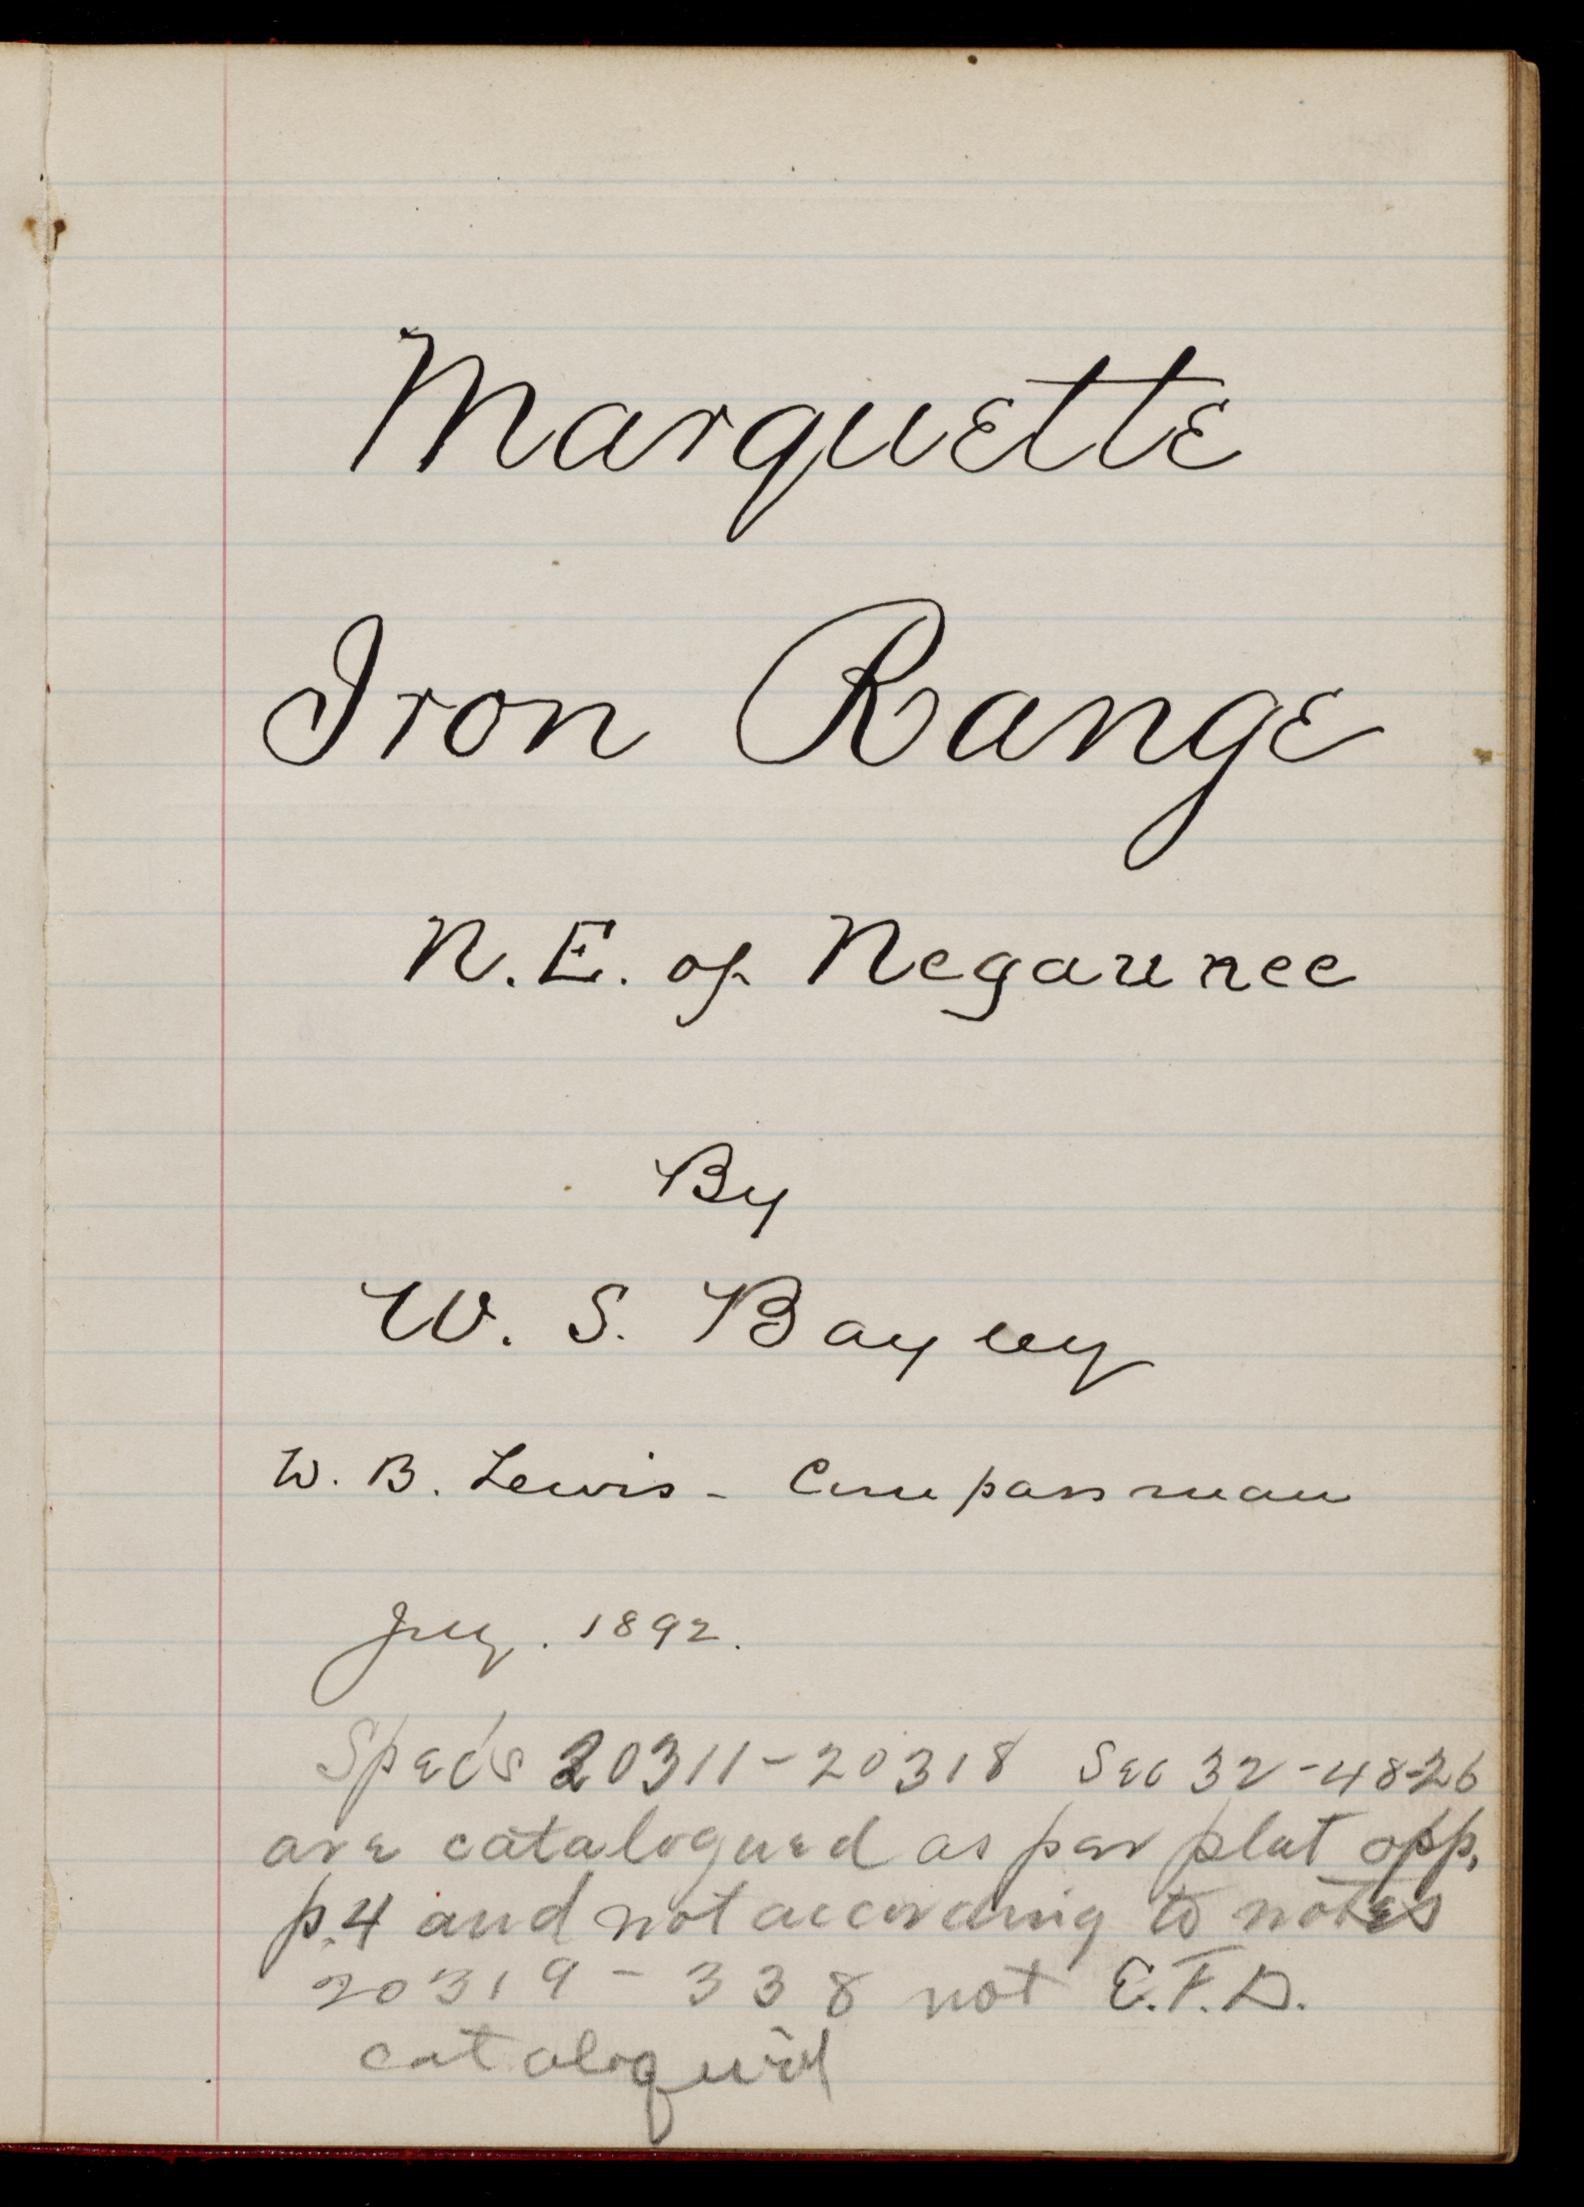 Marquette
Iron Range
N.E. of Negaunee
By
W. S. Bayley
W. B. Lewis - Compassman
July. 1892.
Specs 20311-20318 Sec 32-48-26
are catalogued as per plat opp.
p.4 and not according to notes
20319-338 not E.F.D.
catalogu'd